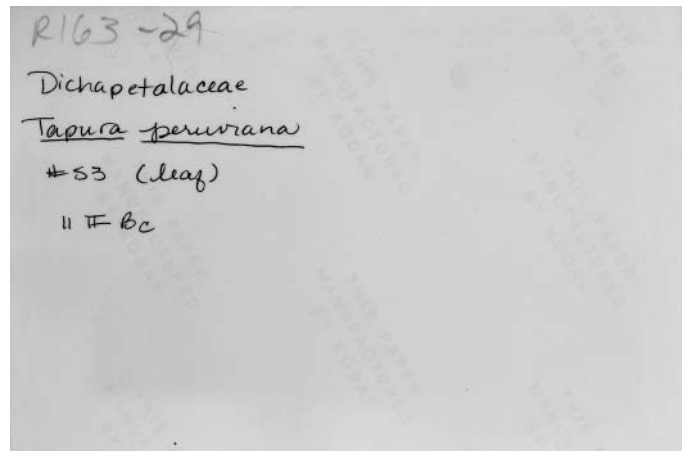 R163-29
Dichapetalaceae
Tapura peruviana
#53 (leaf)
11 II Bc
THIS PAPER
MANUFACTURED
BY KODAK